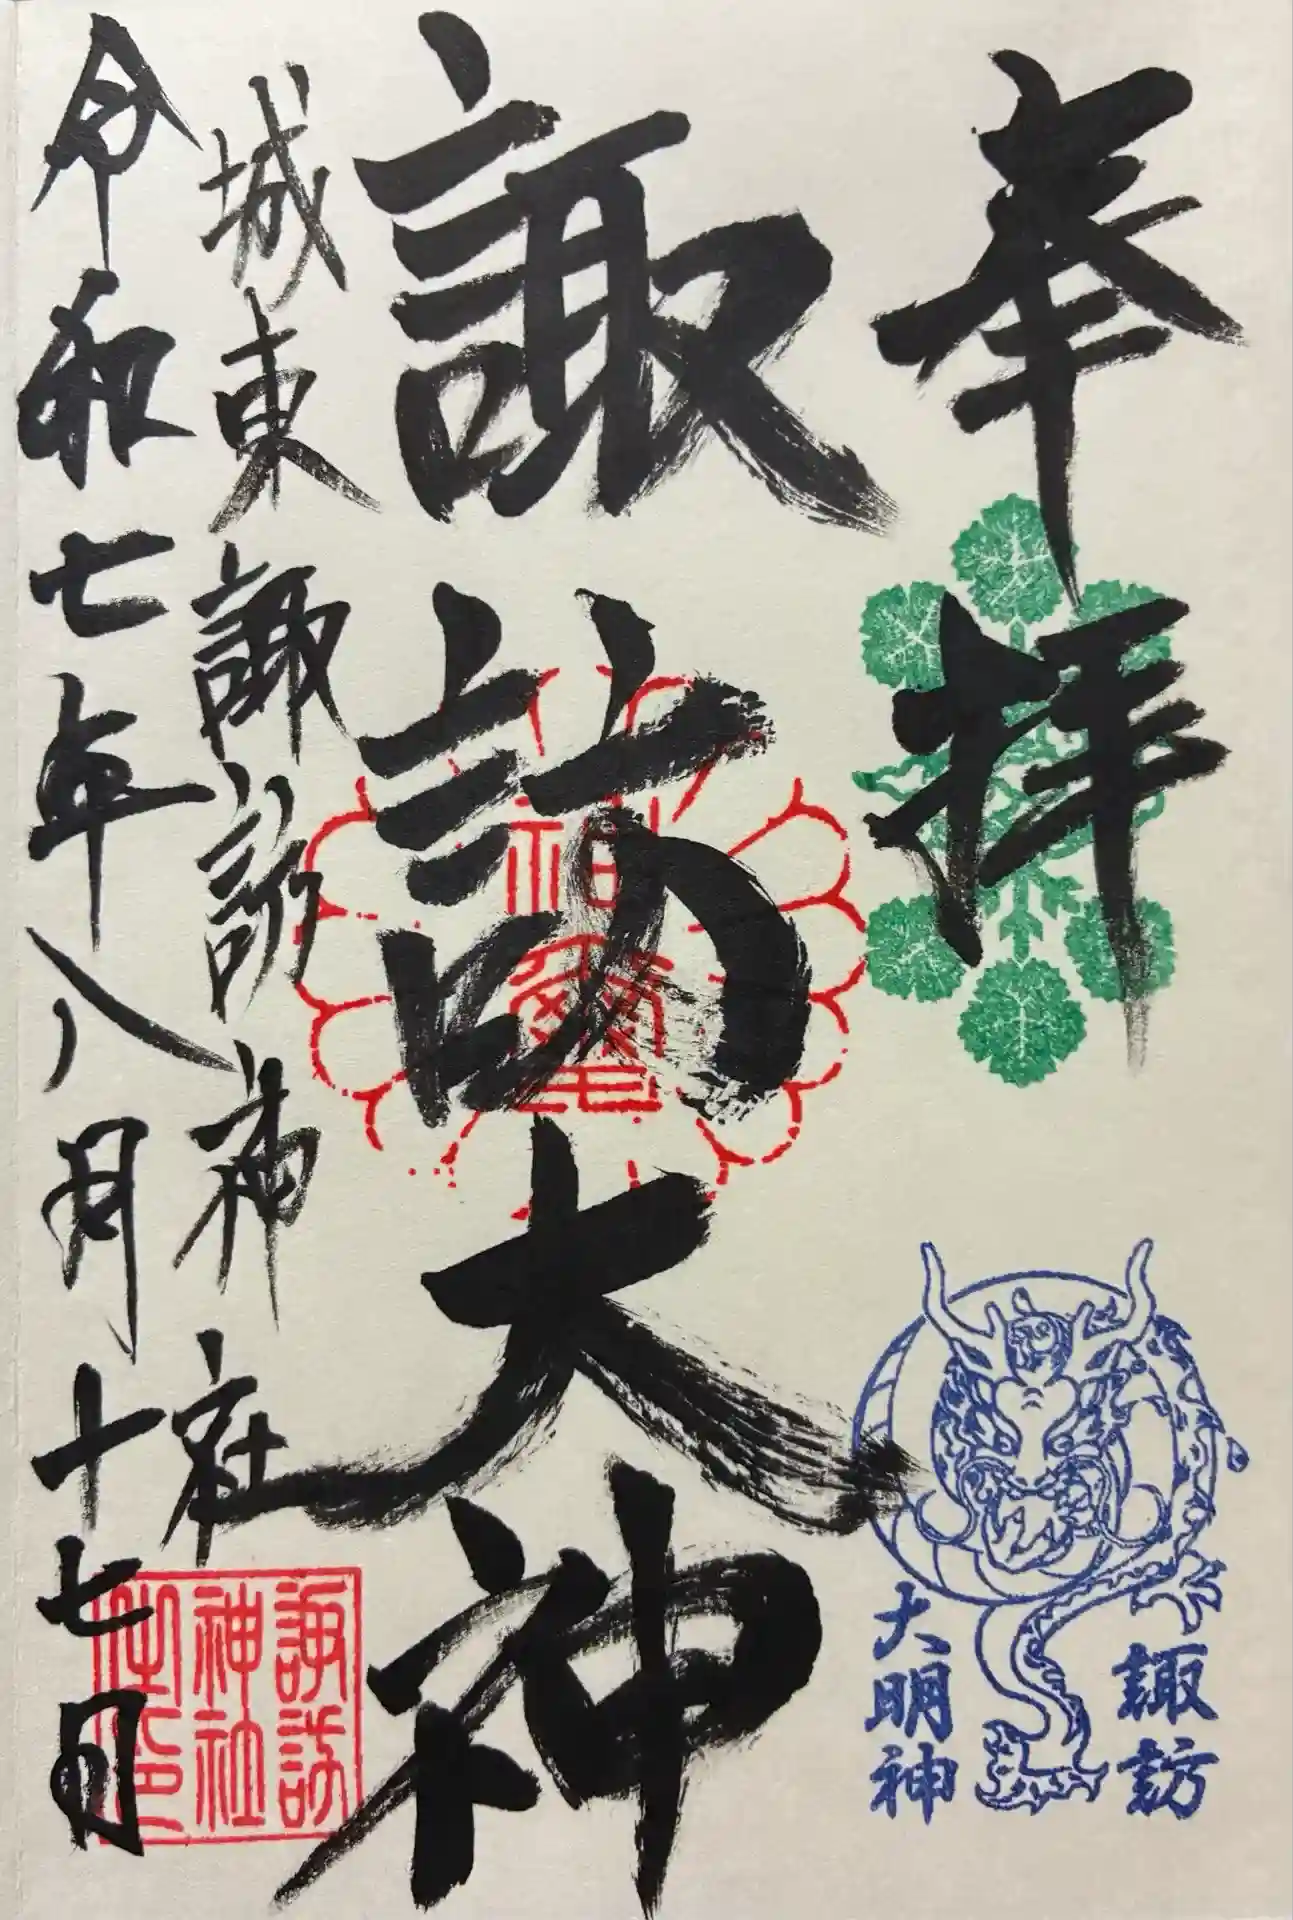 奉拝
諏訪大神
城東諏訪神社
令和七年八月十七日
諏訪
大明神
諏訪
神社